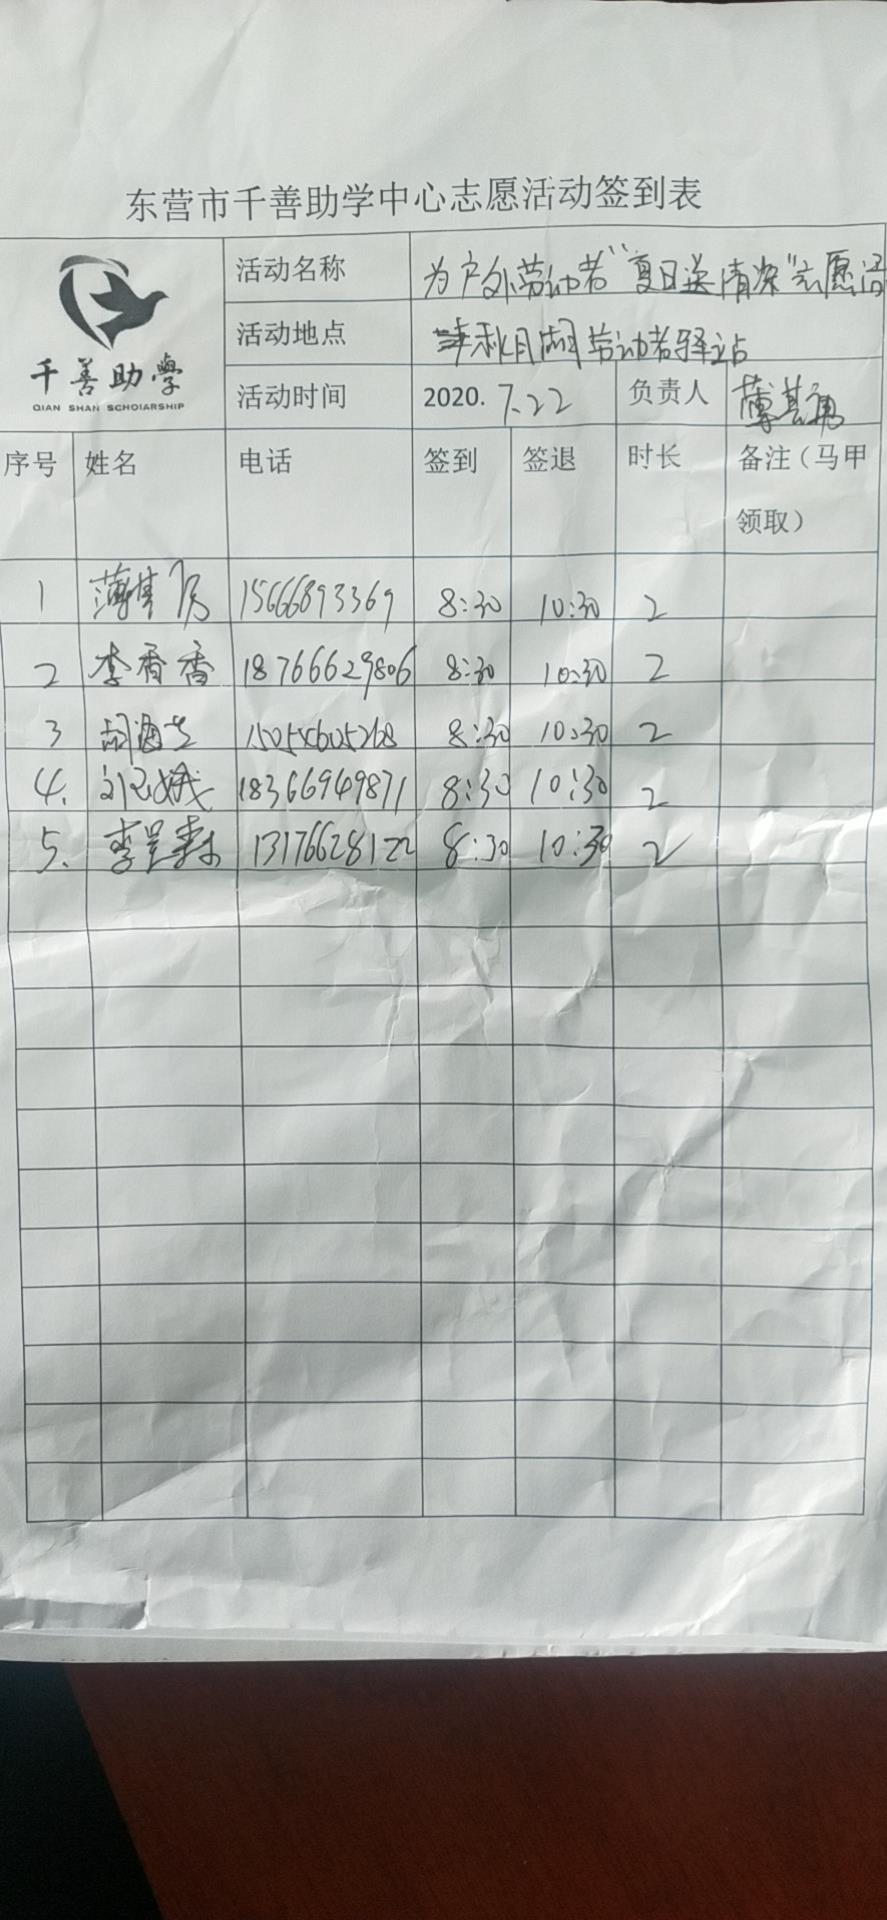 东营市千善助学中心志愿活动签到表
千善助學
QIAN SHAN SCHOLARSHIP
活动名称 为户外劳动者“夏日送清凉”志愿活
活动地点 秋月湖劳动者驿站
活动时间 2020. 7.22 负责人 薄其
序号 姓名 电话 签到 签退 时长 备注（马甲领取）
1 薄其 15666893369 8:30 10:30 2
2 李香香 18766629806 8:30 10:30 2
3 胡海 15054605268 8:30 10:30 2
4. 娥 18366949871 8:30 10:30 2
5. 李 13176628122 8:30 10:30 2